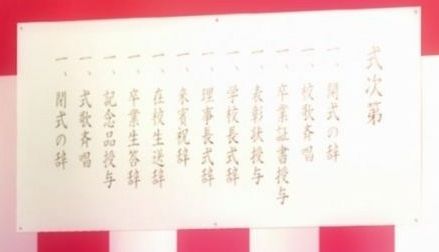 式次第
一、開式の辞
一、校歌斉唱
一、卒業証書授与
一、表彰状授与
一、学校長式辞
一、理事長式辞
一、来賓祝辞
一、在校生送辞
一、卒業生答辞
一、記念品授与
一、式歌斉唱
一、閉式の辞